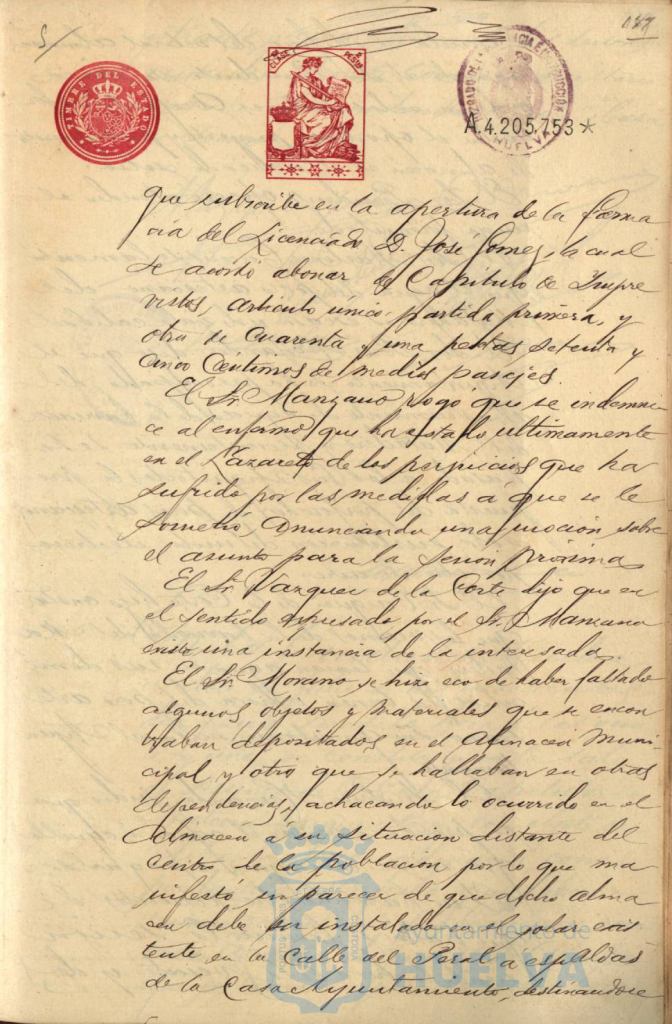 5/
187
TIMBRE DEL ESTADO
CLASE
PESETAS
JUZGADO DE INSTRUCCIÓN
HUELVA
A.4.205.753*
que subscribe en la apertura de la farma
cia del Licenciado D. José Gomez, la cual
se acordó abonar de Capitulo de Impre
vistos, articulo único, partida primera, y
otra de cuarenta y una pesetas setenta y
cinco Céntimos de medios pasajes.
El Sr. Manzano rogó que se indemni
ce al enfermo que ha estado ultimamente
en el Lazareto de los perjuicios que ha
sufrido por las medidas á que se le
sometió, anunciando una moción sobre
el asunto para la sesión próxima.
El Sr. Vazquez de la Corte dijo que en
el sentido expresado por el Sr. Manzano
existe una instancia de la interesada.
El Sr. Morano, se hizo eco de haber faltado
algunos objetos y materiales que se encon
traban depositados en el Almacen Muni
cipal y otro que se hallaban en otras
dependencias, achacando lo ocurrido en el
Almacen á su situacion distante del
centro de la poblacion por lo que ma
nifestó un parecer de que dicho alma
cen debe ser instalado en el solar exis
tente en la Calle del Peral a espaldas
de la Casa Ayuntamiento, destinandose
Ayuntamiento de
HUELVA